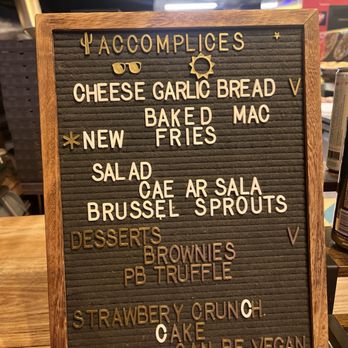 ACCOMPLICES
CHEESE GARLIC BREAD V
BAKED MAC
*NEW FRIES
SALAD
CAE AR SALA
BRUSSEL SPROUTS
DESSERTS V
BROWNIES
PB TRUFFLE
STRAWBERY CRUNCH.
CAKE
CAN BE VEGAN